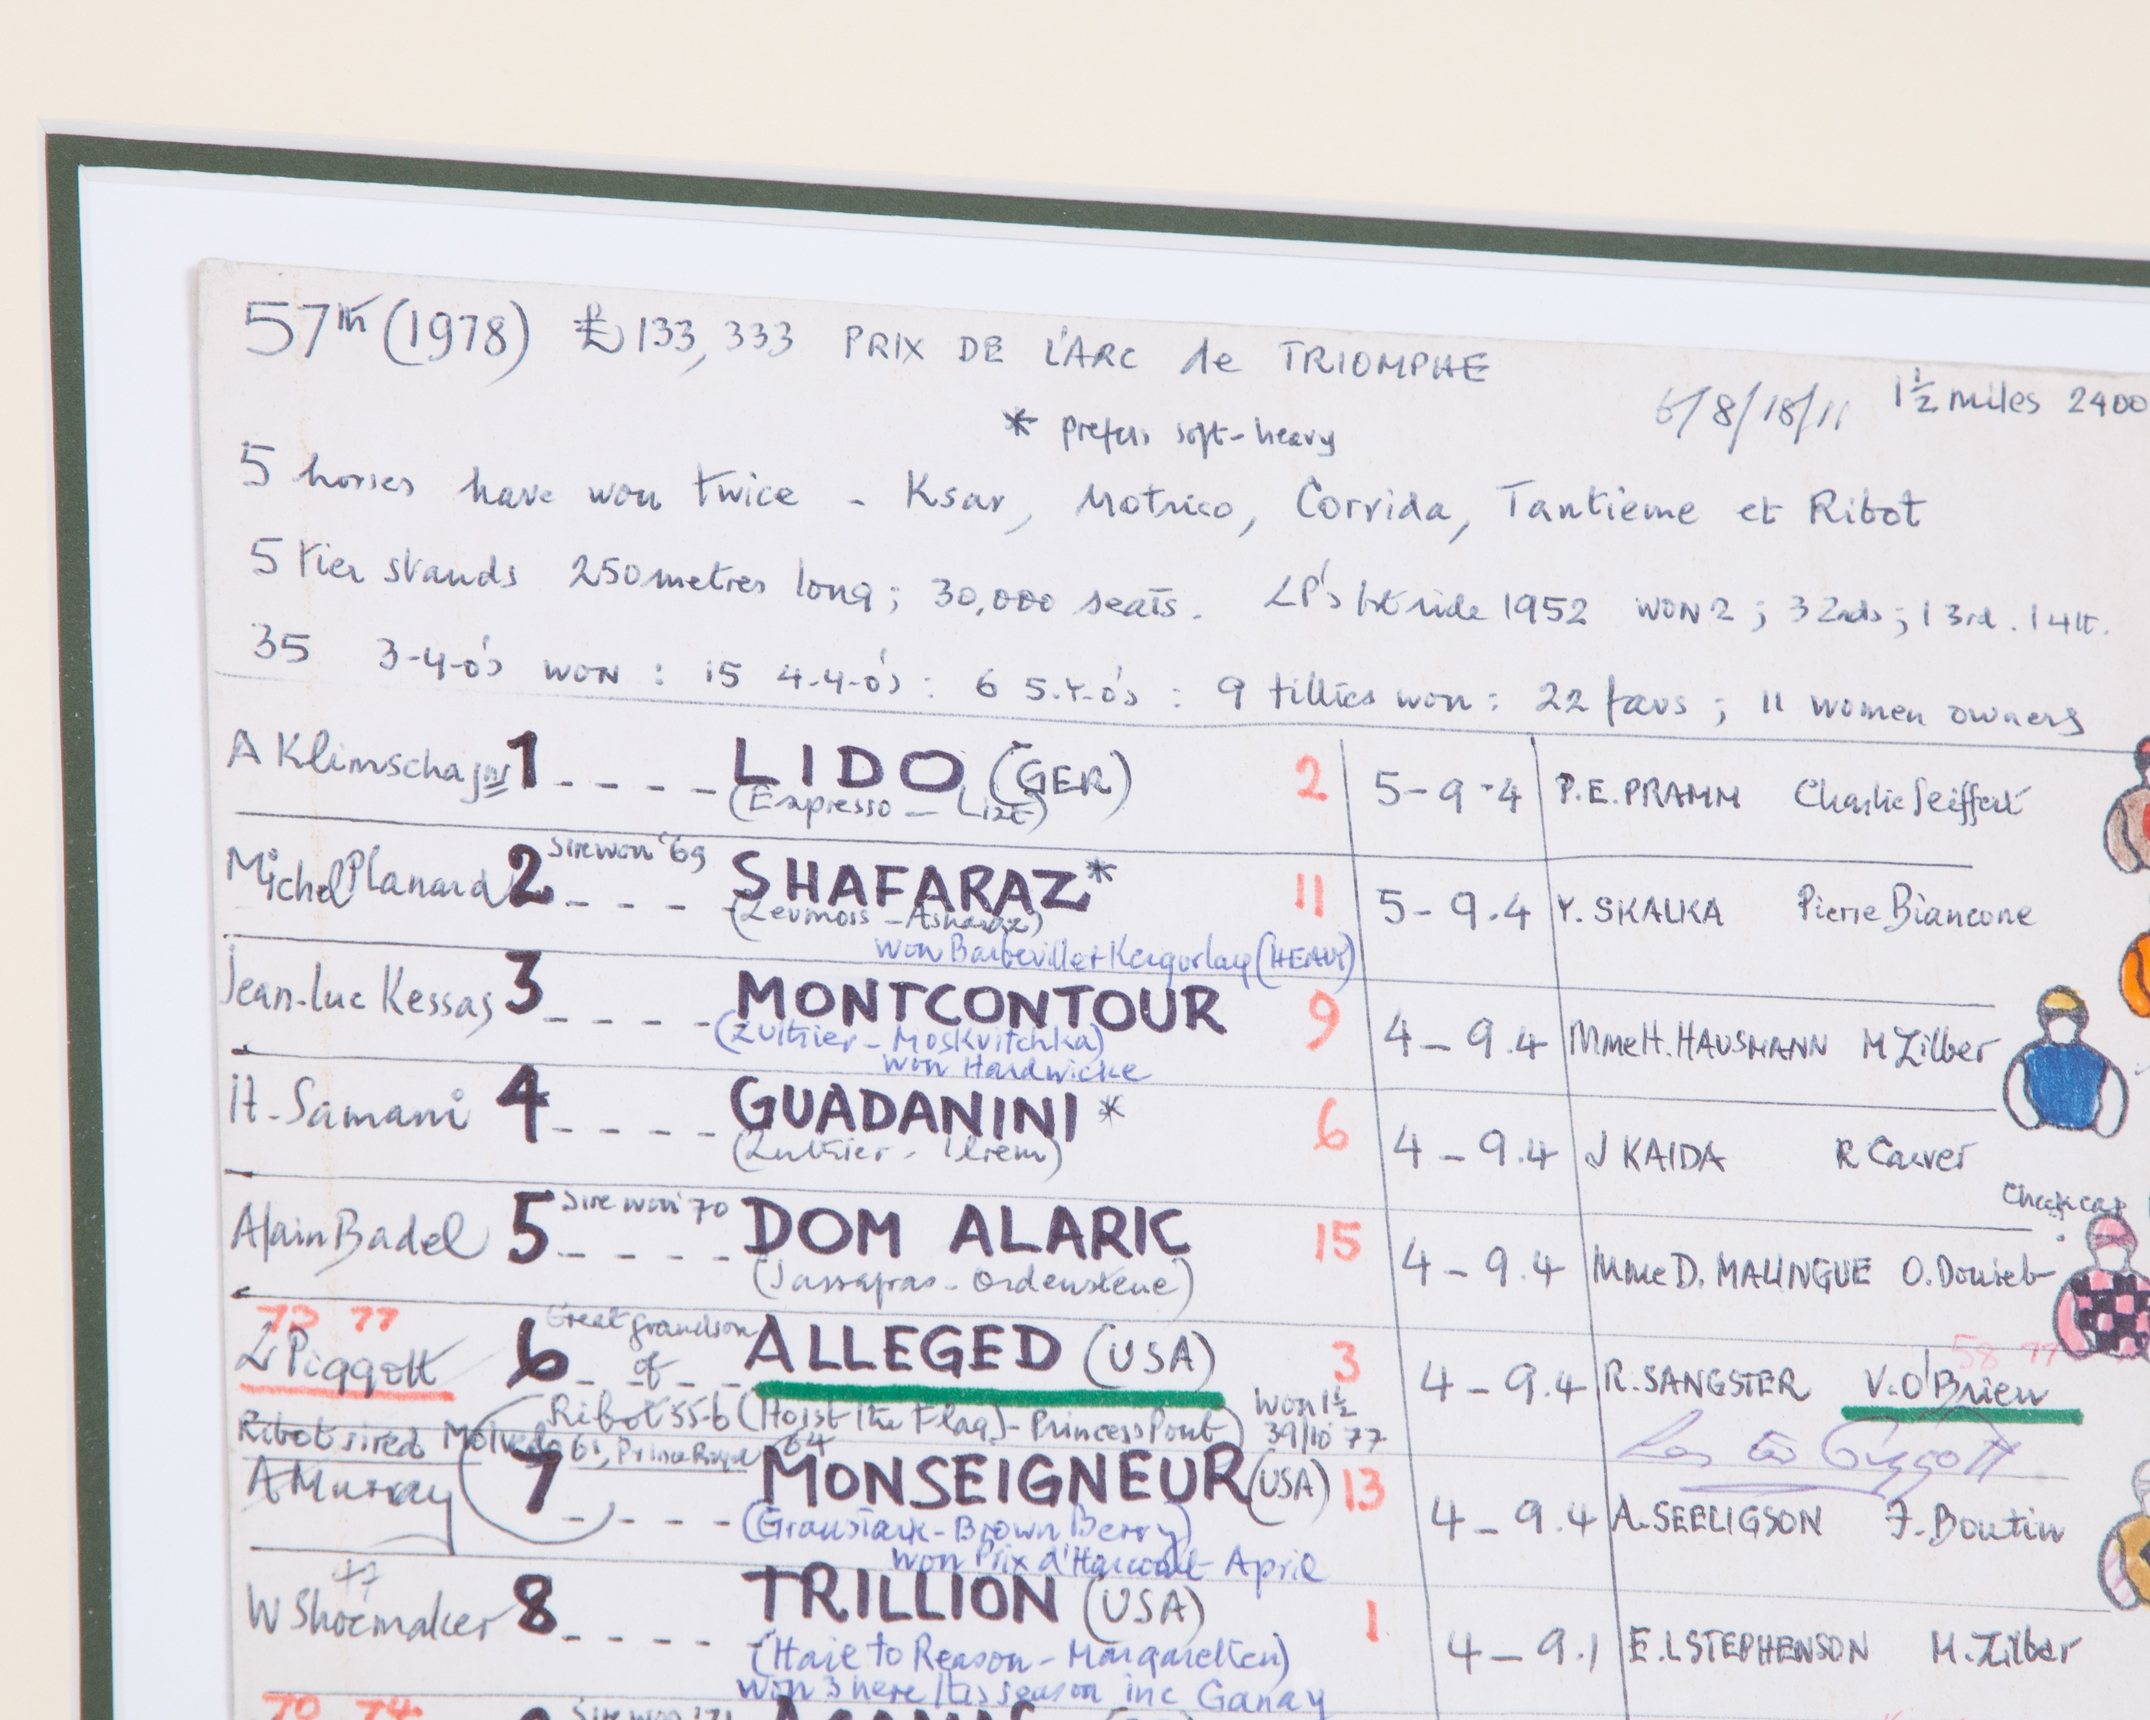 57th (1978) £133,333 PRIX DE L'ARC de TRIOMPHE
6/8/18/11 1½ miles 2400
* prefers soft-heavy
5 horses have won twice - Ksar, Motrico, Corrida, Tantieme et Ribot
5 tier stands 250 metres long; 30,000 seats. LP's 1st ride 1952 WON 2; 3 2nds; 1 3rd. 1 4th.
35 3-Y-O's WON : 15 4-Y-O's : 6 5-Y-O's : 9 fillies won : 22 favs ; 11 women owners
A Klimscha jnr 1 - - - - LIDO (GER) 2 5-9-4 P.E. PRAMM Charlie Seiffert
(Espresso - Lize)
Michel Planard 2 Sire won '69 - - - - SHAFARAZ* 11 5-9.4 Y. SKALKA Pierre Biancone
(Levmoss - Asharaz)
won Barbeville + Kergorlay (HEAVY)
Jean-luc Kessas 3 - - - - MONTCONTOUR 9 4-9.4 Mme H. HAUSMANN M Zilber
(Luthier - Moskvitchka)
won Hardwicke
H. Samani 4 - - - - GUADANINI * 6 4-9.4 J KAIDA R Carver
(Luthier - Ilrem)
Check cap
Alain Badel 5 Sire won '70 - - - - DOM ALARIC 15 4-9.4 Mme D. MALINGUE O. Douieb
(Sassafras - Ordenstene)
73 77 58 77
L Piggott 6 Great grandson of ALLEGED (USA) 3 4-9.4 R. SANGSTER V. O'Brien
Ribot 55-6 (Hoist the Flag) - Princess Pout) Won 1½ 39/10 '77
Lester Piggott
Ribot sired Molvedo 61, Prince Royal 64
A Murray 7 - - - - MONSEIGNEUR (USA) 13 4-9.4 A. SEELIGSON F. Boutin
(Graustark - Brown Berry)
won Prix d'Harcourt April
47
W Shoemaker 8 - - - - TRILLION (USA) 1 4-9.1 E.L STEPHENSON M. Zilber
(Haie to Reason - Margaretten)
won 3 here this season inc Ganay
70 74
Sire won '71